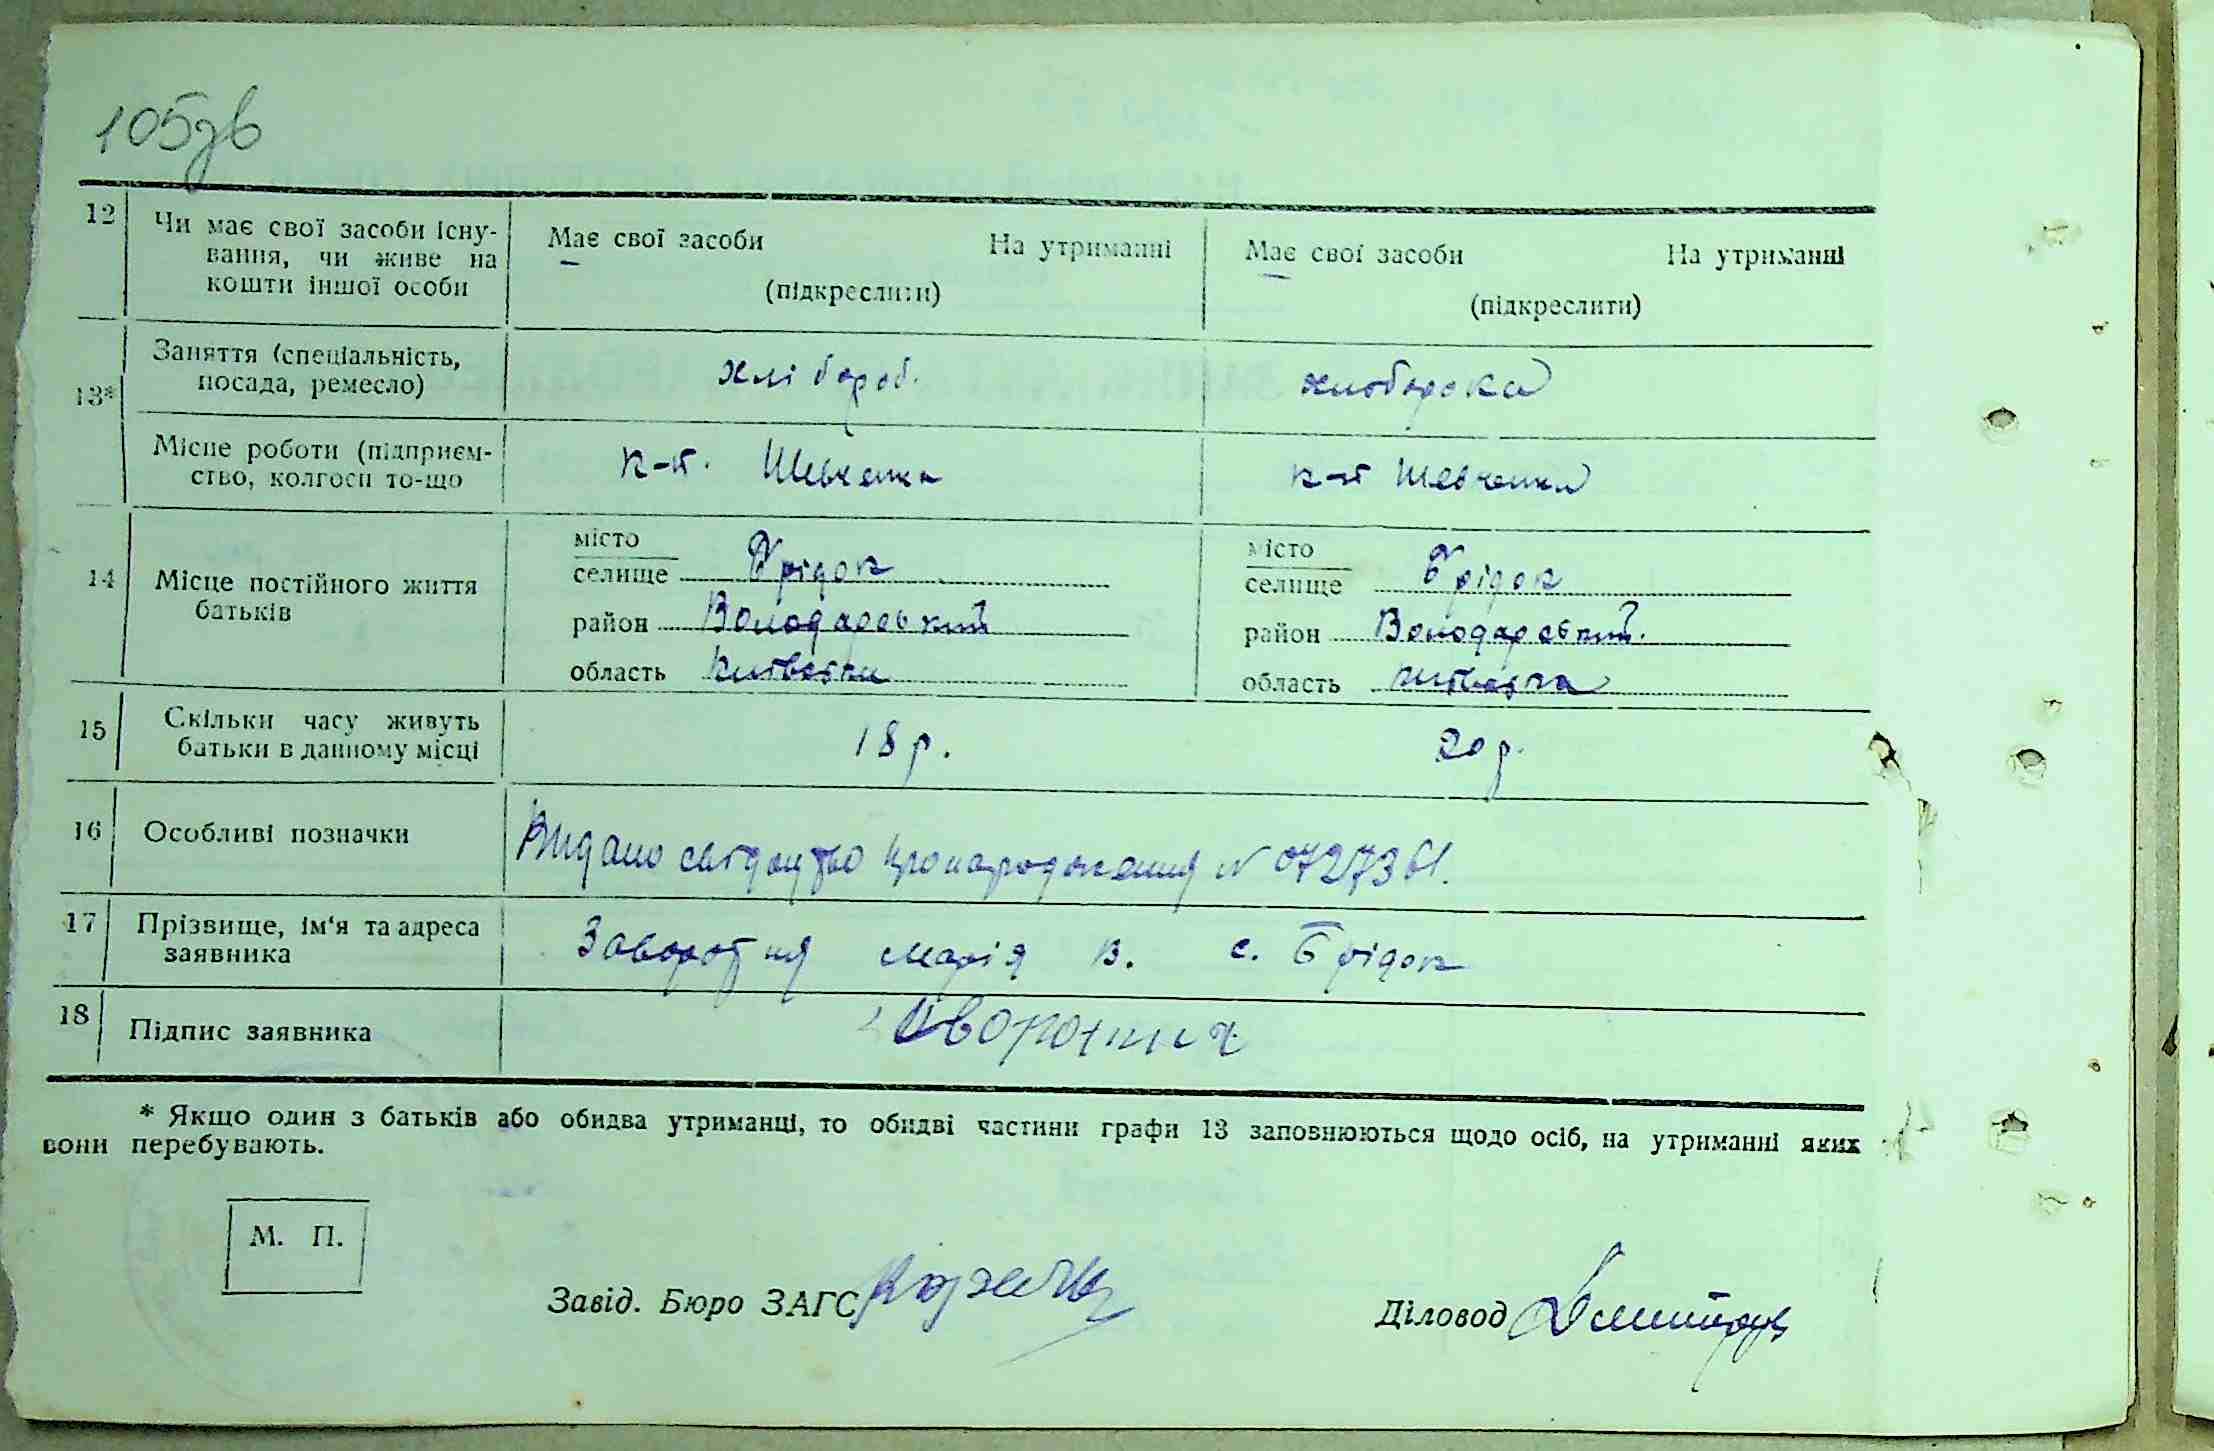 105зв
12 Чи має свої засоби існу- Має свої засоби На утриманні Має свої засоби На утриманні
вання, чи живе на
кошти іншої особи (підкреслити) (підкреслити)
13* Заняття (спеціальність, хлібороб. хліборобка
посада, ремесло)
Місце роботи (підприєм- к-п. Шевченка к-п Шевченка
ство, колгосп то-що
14 Місце постійного життя місто місто
батьків селище Брідок селище Брідок
район Володарський район Володарський.
область Київська область Київська
15 Скільки часу живуть 18 р. 20 р.
батьки в данному місці
16 Особливі позначки Видано свідоцтво про народження N 072736
17 Прізвище, ім'я та адреса Заворотня Марія В. с. Брідок
заявника
18 Підпис заявника Заворотня
* Якщо один з батьків або обидва утриманці, то обидві частини графи 13 заповнюються щодо осіб, на утриманні яких
вони перебувають.
М. П.
Завід. Бюро ЗАГС Діловод